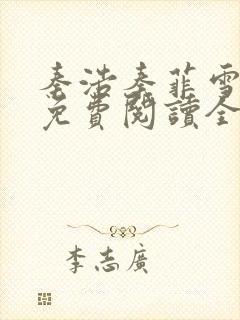 秦浩秦菲雪
免費閱讀全
李志廣